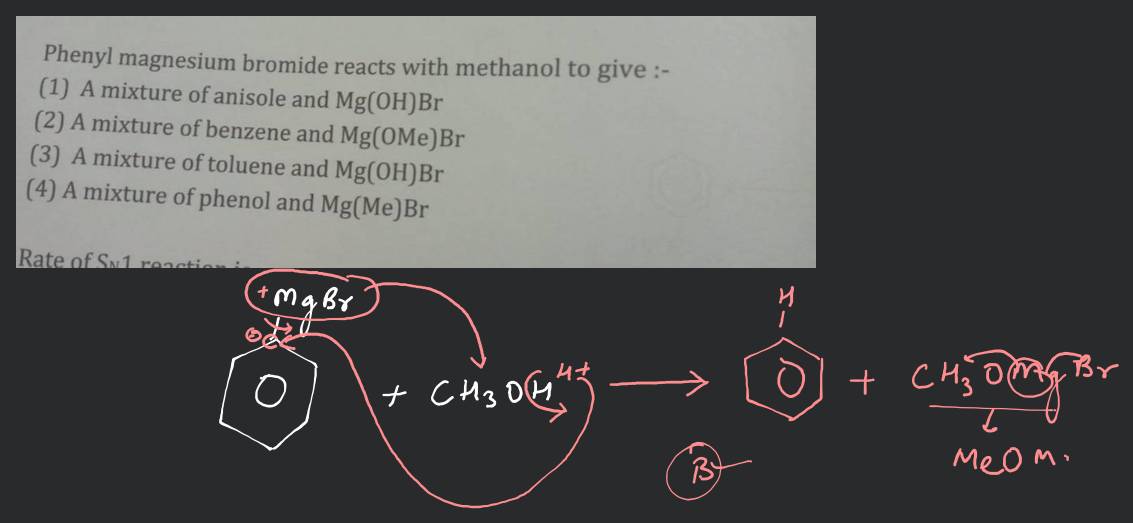 Phenyl magnesium bromide reacts with methanol to give :-
(1) A mixture of anisole and Mg(OH)Br
(2) A mixture of benzene and Mg(OMe)Br
(3) A mixture of toluene and Mg(OH)Br
(4) A mixture of phenol and Mg(Me)Br
Rate of SN1 reaction
+MgBr
⊖C
+ CH3OH H+
H
+ CH3OMgBr
MeOM
Br